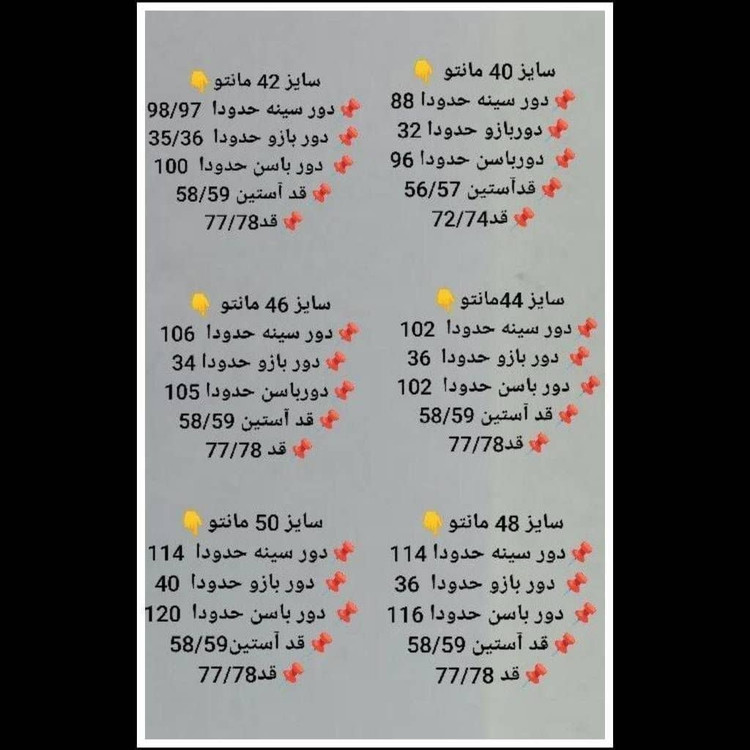 سایز 40 مانتو 👇
📌دور سینه حدودا 88
📌دوربازو حدودا 32
📌دورباسن حدودا 96
📌قدآستین 56/57
📌قد72/74
سایز 42 مانتو 👇
📌دور سینه حدودا 98/97
📌دور بازو حدودا 35/36
📌دور باسن حدودا 100
📌قد آستین 58/59
📌قد77/78
سایز 44مانتو 👇
📌دور سینه حدودا 102
📌دور بازو حدودا 36
📌دور باسن حدودا 102
📌قد آستین 58/59
📌قد77/78
سایز 46 مانتو 👇
📌دور سینه حدودا 106
📌دور بازو حدودا 34
📌دورباسن حدودا 105
📌قد آستین 58/59
📌قد 77/78
سایز 48 مانتو 👇
📌دور سینه حدودا 114
📌دور بازو حدودا 36
📌دور باسن حدودا 116
📌قد آستین 58/59
📌قد 77/78
سایز 50 مانتو 👇
📌دور سینه حدودا 114
📌دور بازو حدودا 40
📌دور باسن حدودا 120
📌قد آستین58/59
📌قد77/78